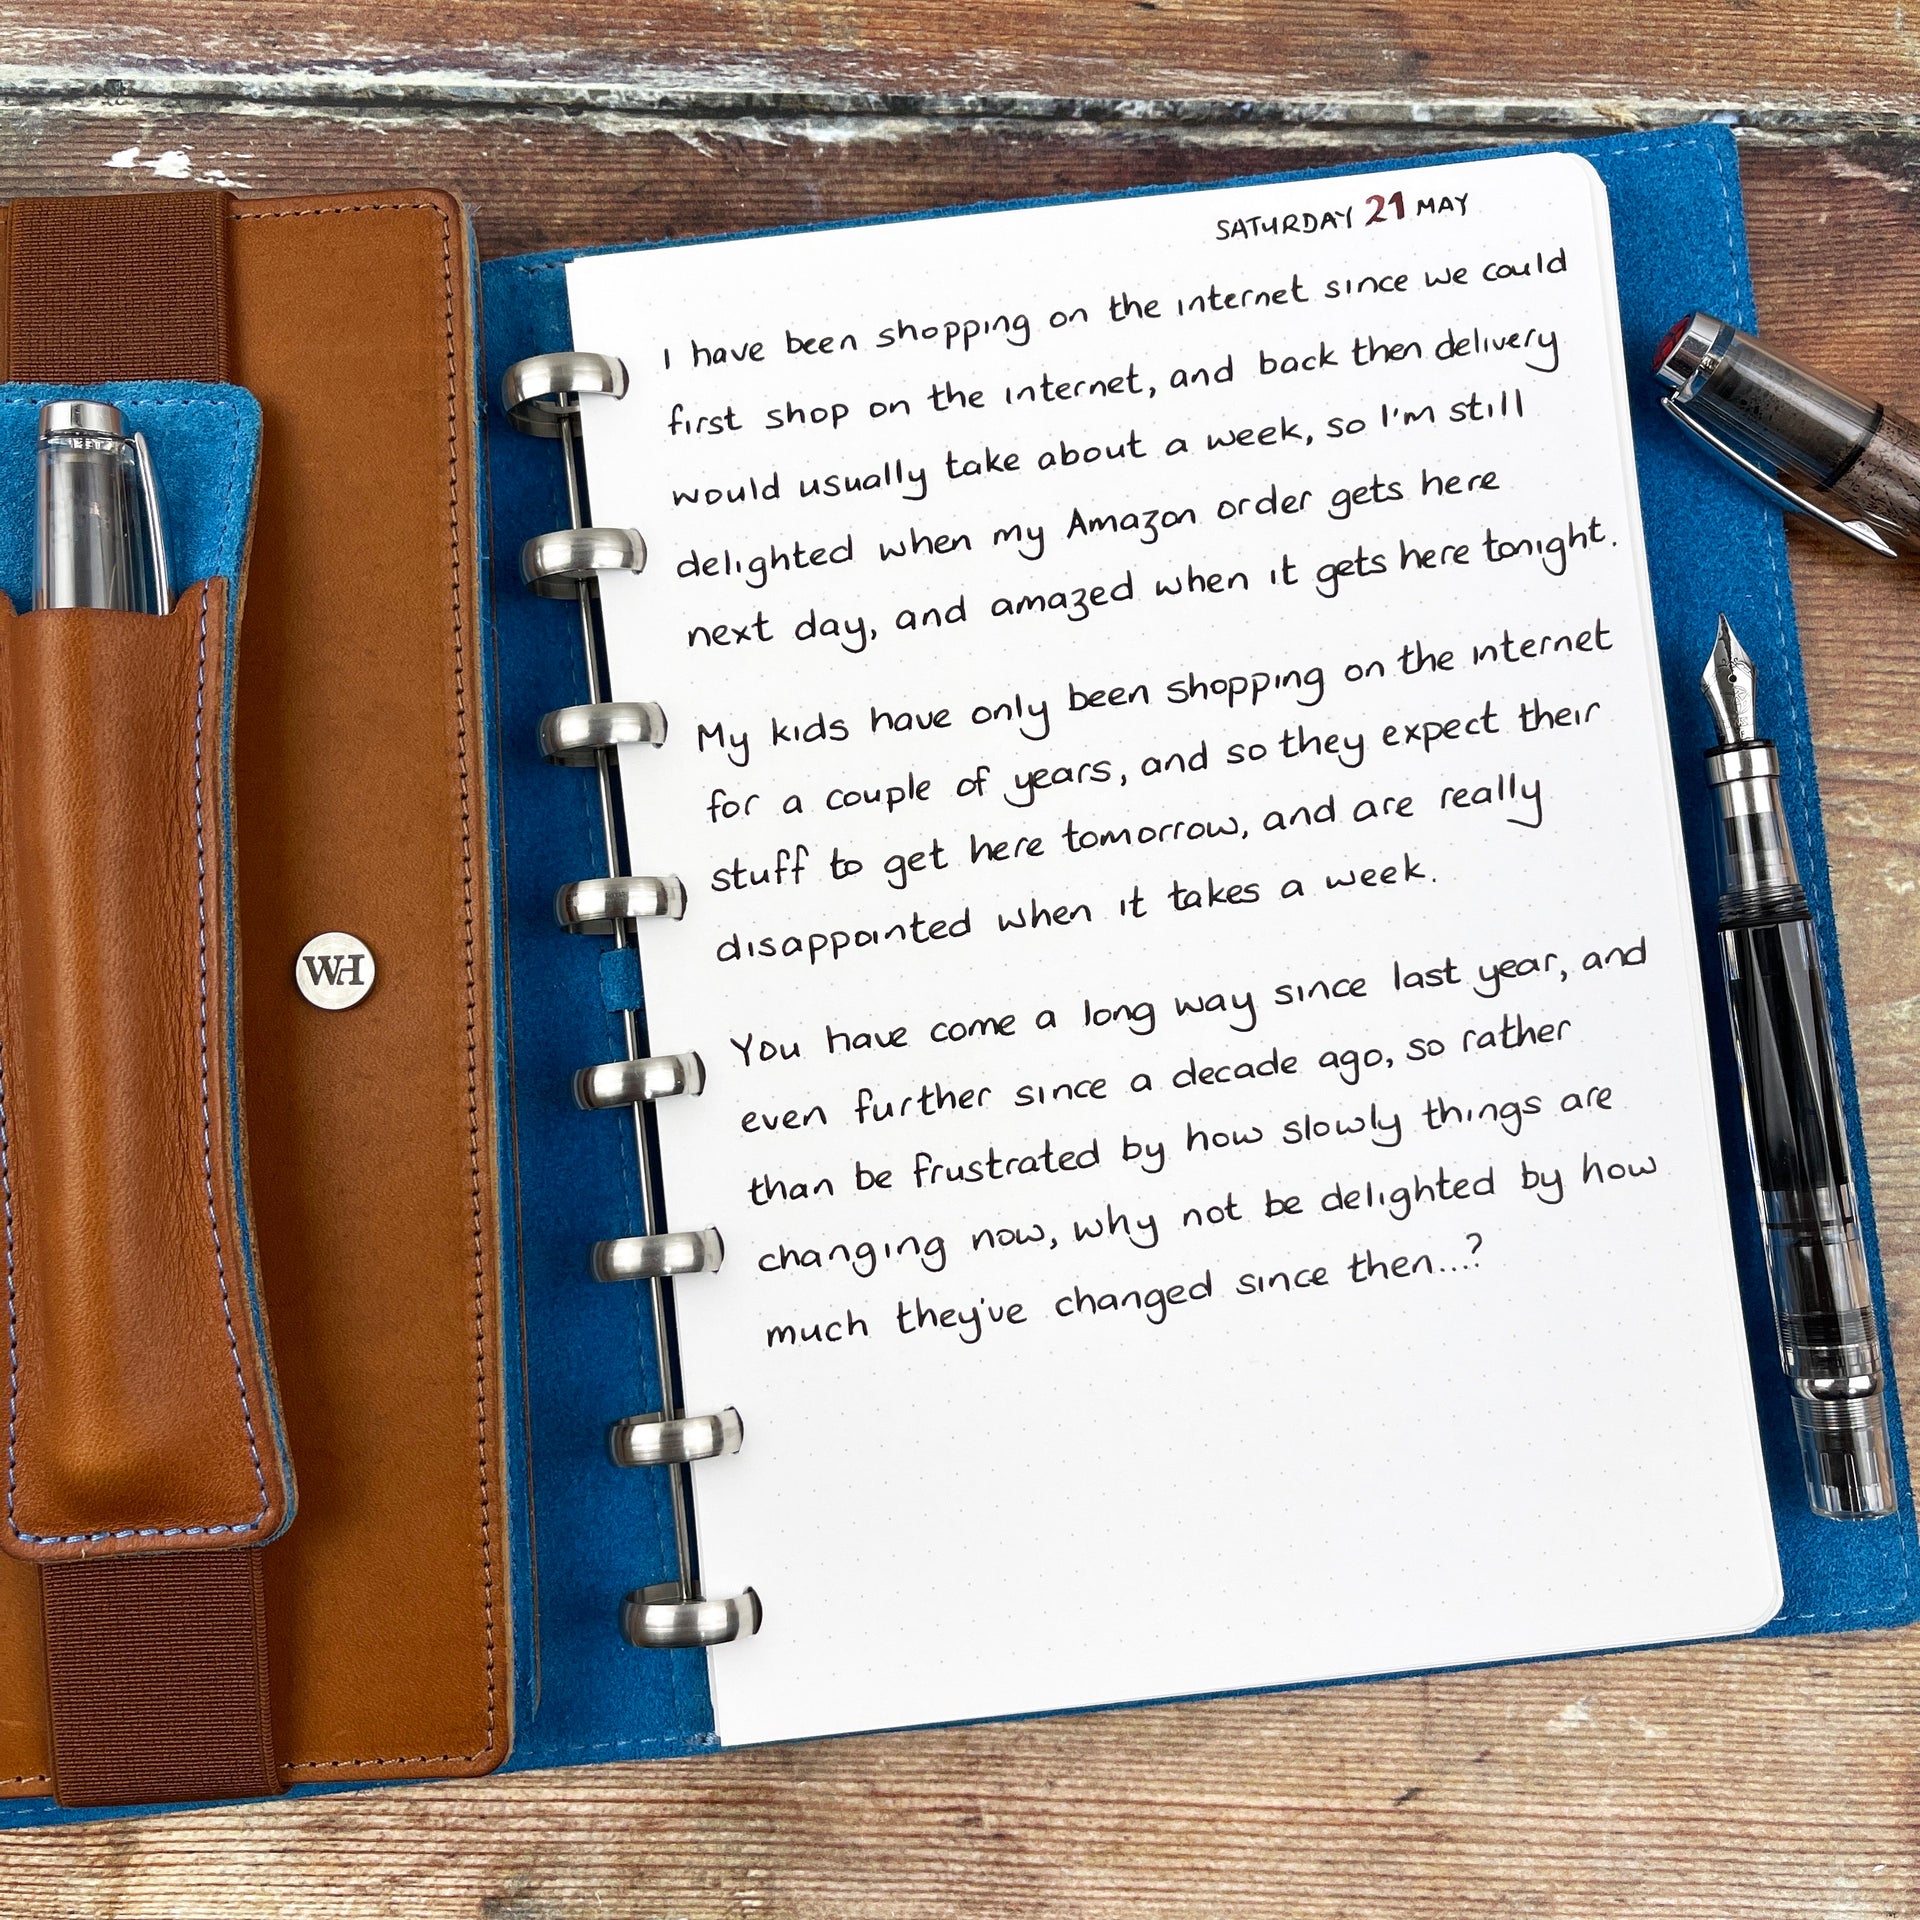 WH
SATURDAY 21 MAY
I have been shopping on the internet since we could
first shop on the internet, and back then delivery
would usually take about a week, so I'm still
delighted when my Amazon order gets here
next day, and amazed when it gets here tonight.
My kids have only been shopping on the internet
for a couple of years, and so they expect their
stuff to get here tomorrow, and are really
disappointed when it takes a week.
You have come a long way since last year, and
even further since a decade ago, so rather
than be frustrated by how slowly things are
changing now, why not be delighted by how
much they've changed since then...?